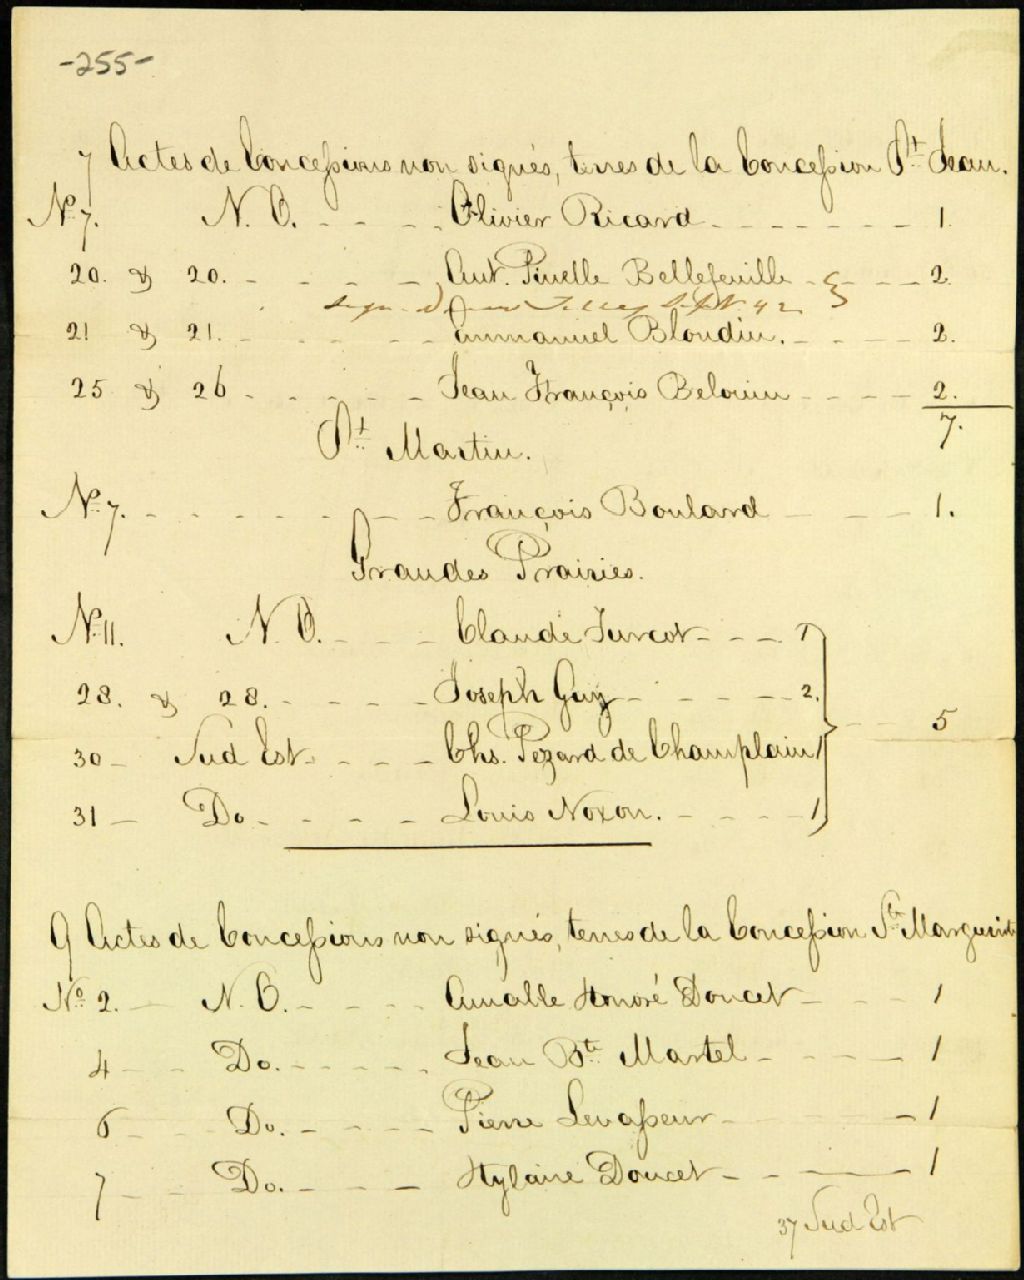 -255-
7 Actes de Concessions non signés, terres de la Concession St Jean.
No 7. N. O. - - - - Olivier Ricard - - - - - - - 1.
20. & 20. - - - - Ant. Pinelle Bellefeuille - - - - 2.
Sept 42
21 & 21. - - - - Emmanuel Blondin. - - - - 2.
25 & 26 - - - - - Jean François Belouin - - - - 2.
7.
St Martin.
No 7. - - - - - - - François Boulard - - - 1.
Grandes Prairies.
No 11. N. O. - - - Claude Turcot - - - 1
28. & 28. - - - - Joseph Guy - - - - - 2.
5
30 - Sud Est - - - - Chs. Pezard de Champlain 1
31 - Do - - - - Louis Noxon. - - - - 1
9 Actes de Concessions non signés, terres de la Concession Ste Marguerite
No 2. - N. O. - - - - Amable Honoré Doucet - - - 1
4 - - Do. - - - - - Jean Bte Martel - - - - 1
6 - - Do. - - - - Pierre Levasseur - - - - 1
7 - - Do. - - - - Hylaire Doucet - - - - 1
37 Sud Est